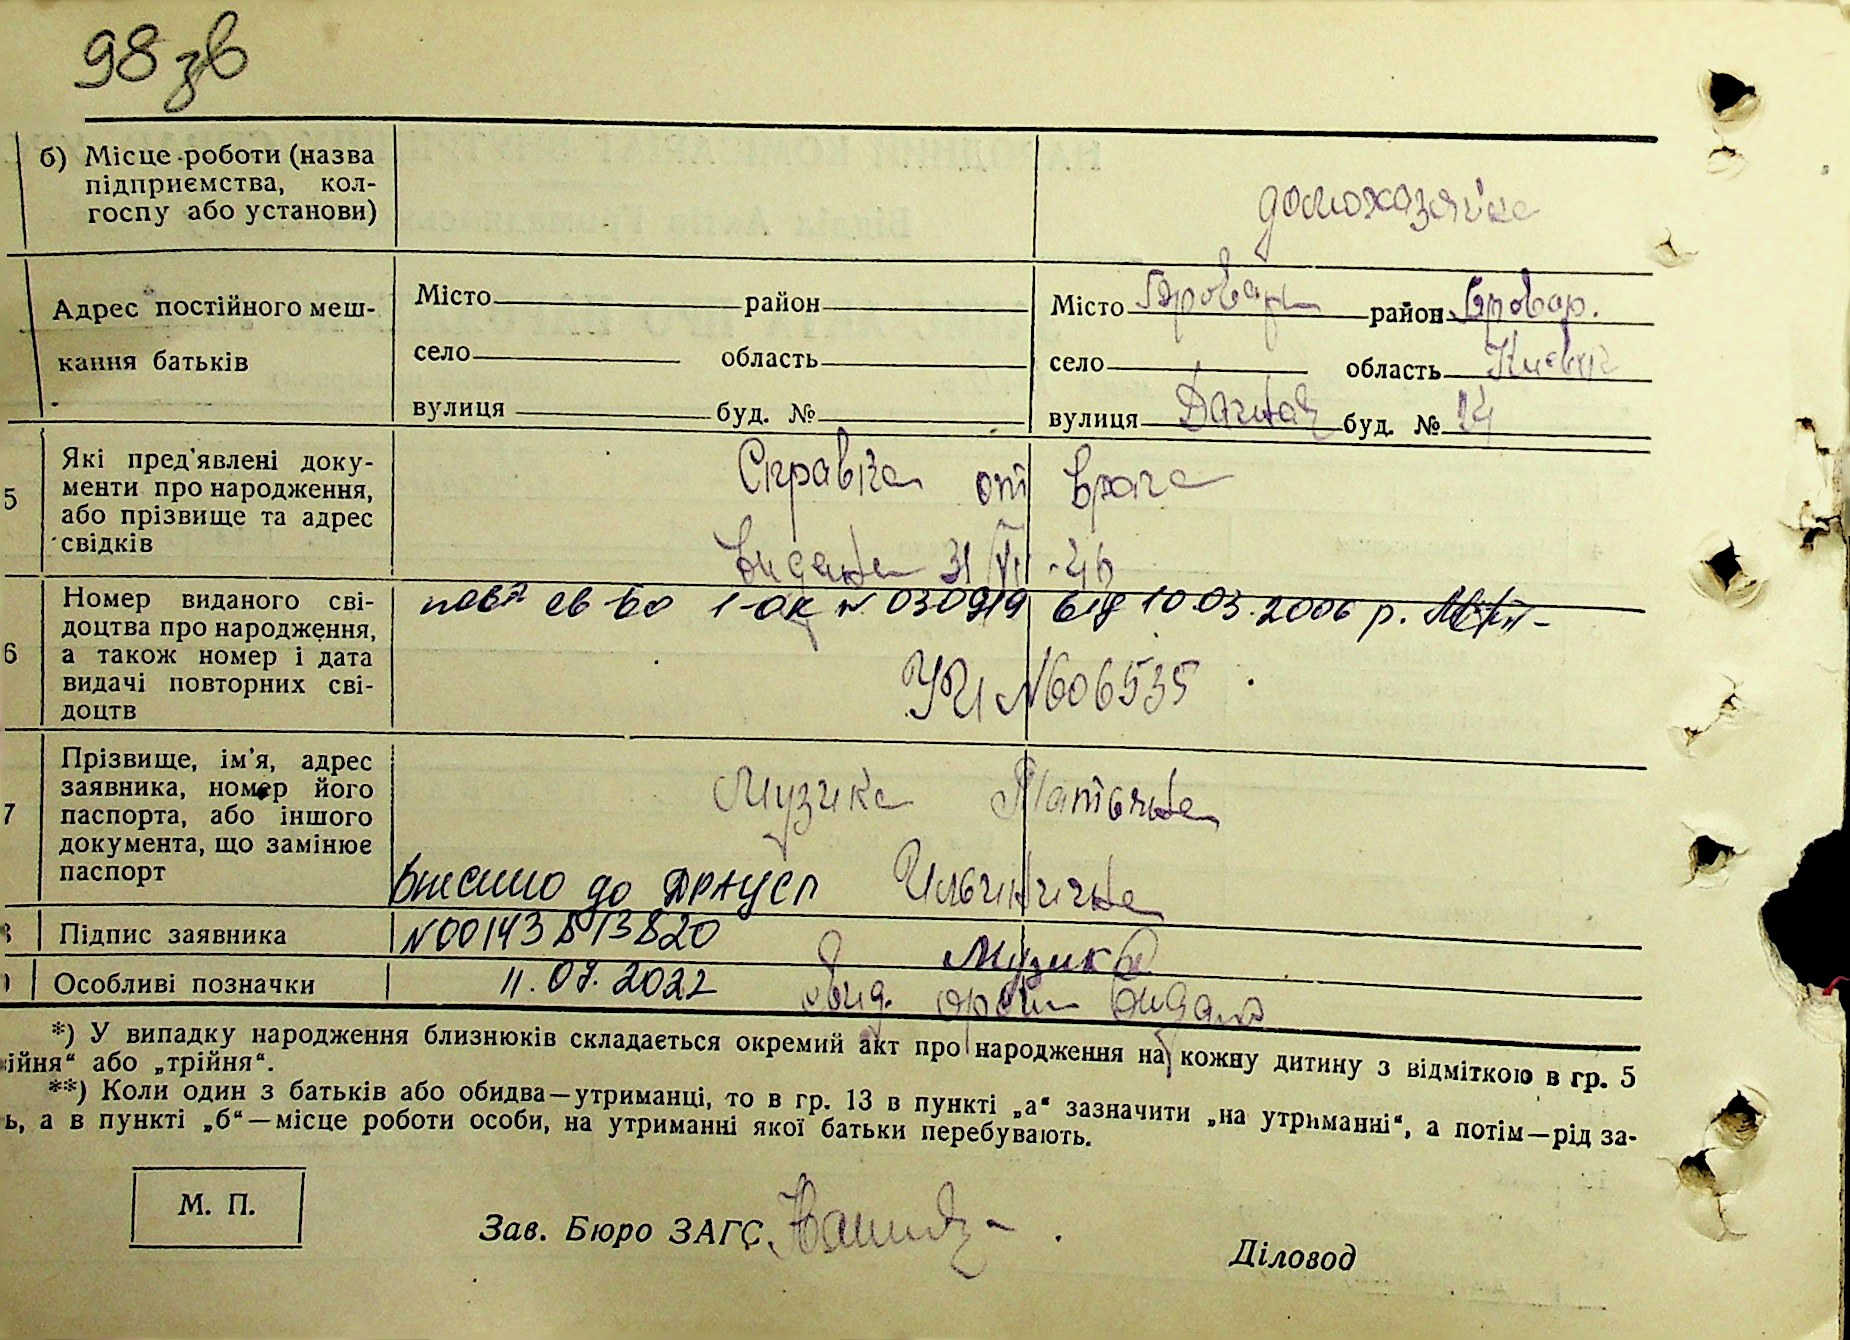 98 зв
б) Місце роботи (назва
підприємства, кол-
госпу або установи)
домохазяйка
Адрес постійного меш-
кання батьків
Місто район
село область
вулиця буд. №
Місто Бровари район Бровар.
село область Київс
вулиця буд. № 14
5 Які пред'явлені доку-
менти про народження,
або прізвище та адрес
свідків
Справка от врача
видана 31/VII-46
6 Номер виданого сві-
доцтва про народження,
а також номер і дата
видачі повторних сві-
доцтв
повт св во 1-ок № 030919 від 10.03.2006 р.
№606535
7 Прізвище, ім'я, адрес
заявника, номер його
паспорта, або іншого
документа, що замінює
паспорт
Музика Татьяна
Ильинична
внесено до ДРАЦСГ
Підпис заявника
№00143813820
Музика
Особливі позначки
11.07.2022
свид. видано
*) У випадку народження близнюків складається окремий акт про народження на кожну дитину з відміткою в гр. 5
ійня“ або „трійня“.
**) Коли один з батьків або обидва—утриманці, то в гр. 13 в пункті „а“ зазначити „на утриманні“, а потім—рід за-
ь, а в пункті „б“—місце роботи особи, на утриманні якої батьки перебувають.
М. П.
Зав. Бюро ЗАГС
Діловод